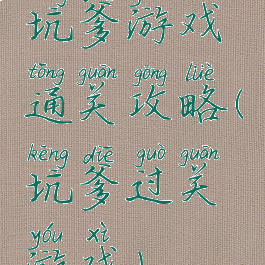 坑爹游戏
tōng guān gōng lüè
通关攻略(
kēng diē guò guān
坑爹过关
yóu xì
游戏)